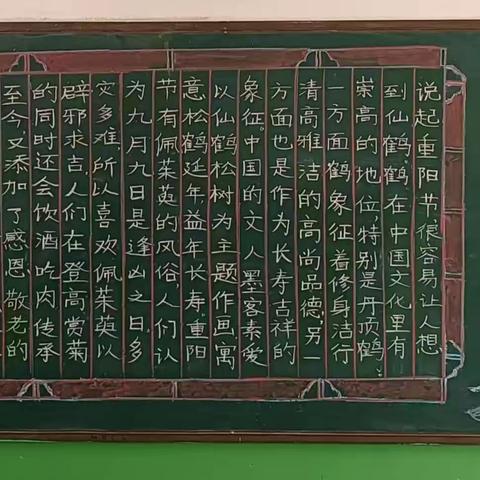 说起重阳节很容易让人想
到仙鹤,鹤在中国文化里有
崇高的地位,特别是丹顶鹤,
一方面鹤象征着修身洁行
清高雅洁的高尚品德,另一
方面也是作为长寿吉祥的
象征。中国的文人墨客素爱
以仙鹤松树为主题作画,寓
意松鹤延年,益年长寿。重阳
节有佩茱萸的风俗,人们认
为九月九日是逢凶之日,多
灾多难,所以喜欢佩茱萸以
辟邪求吉。人们在登高赏菊
的同时还会饮酒吃肉传承
至今,又添加了感恩敬老的